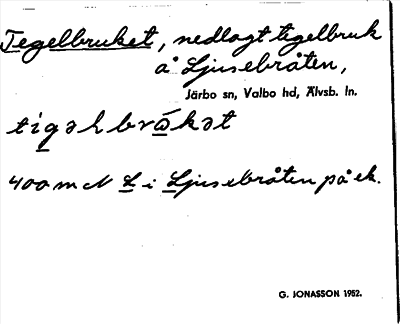 Tegelbruket, nedlagt tegelbruk
å Ljusebråten,
Järbo sn, Valbo hd, Älvsb. ln.
tigəlbrákət
400 m N L i Ljusebråten på ek.
G. JONASSON 1952.